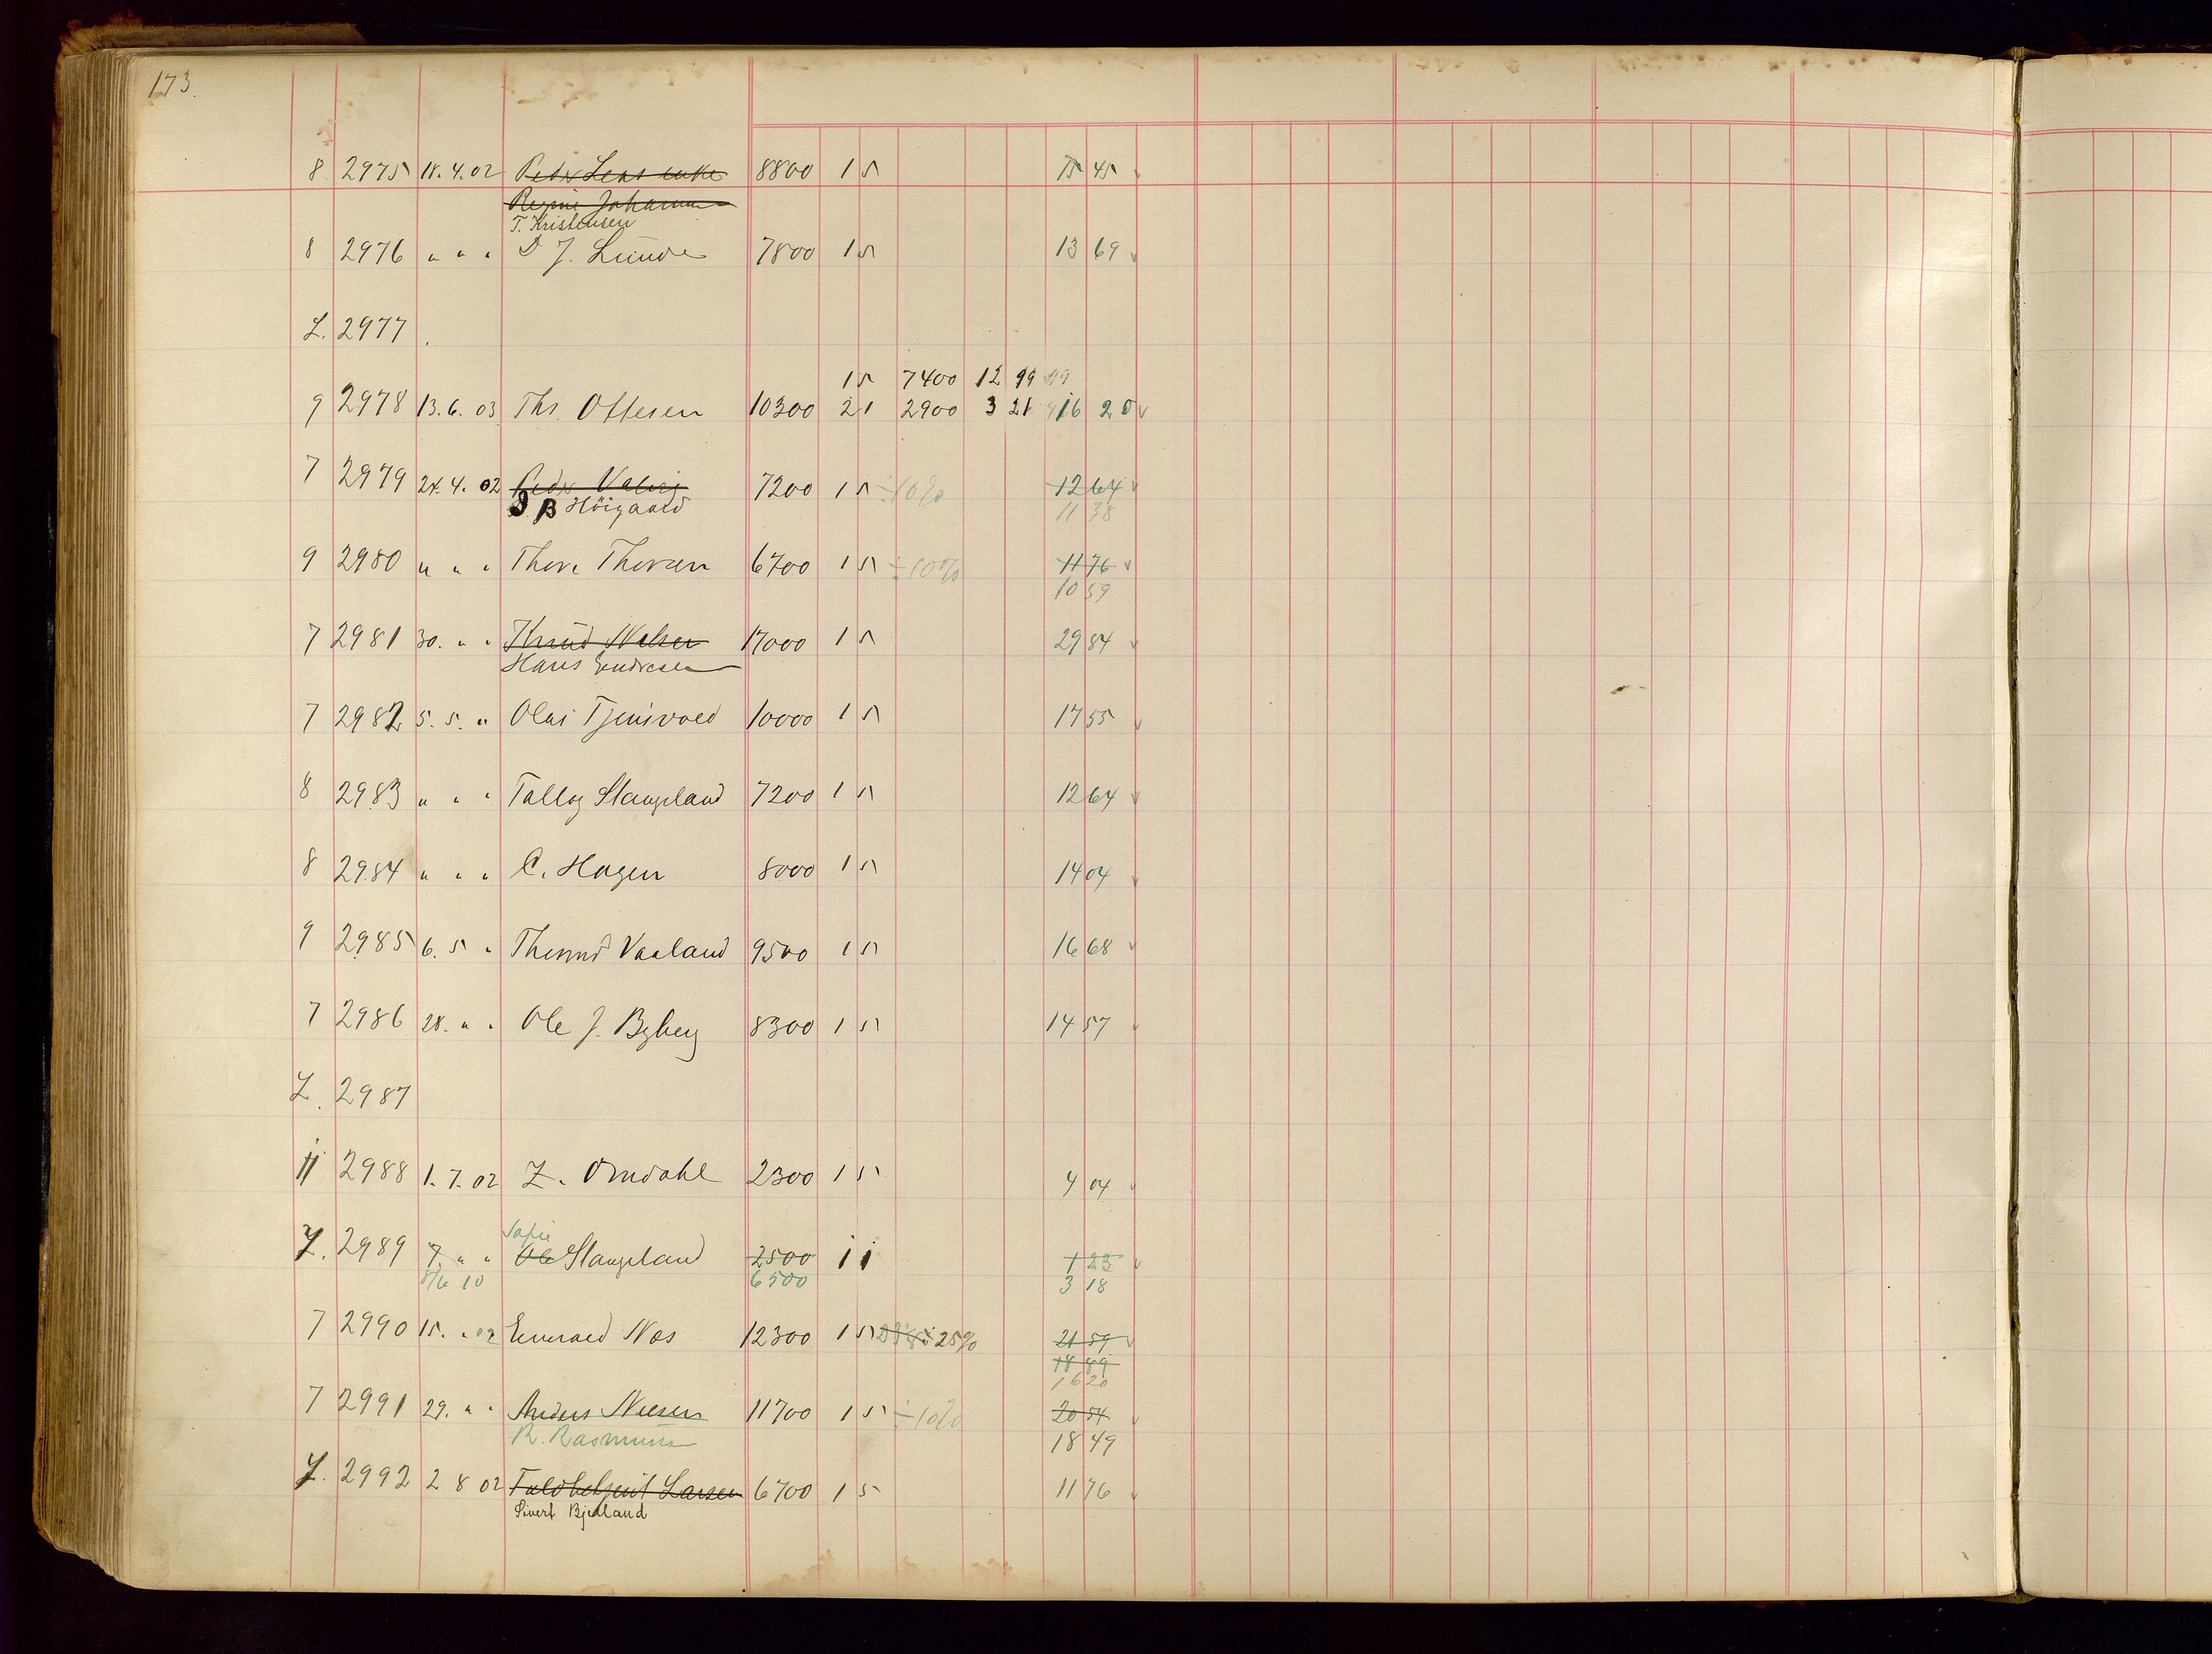 173.
8 2975 18.4.02 8800 1 5 15 45
T. Kristensen
8 2976 " " " J. Lunde 7800 1 5 13 69
L. 2977
1 5 7400 12 99
9 2978 13.6.03 Ths. Ottesen 10300 2 1 2900 3 21 16 20
7 2979 24.4.02 Peder Valvig 7200 1 5 ÷10% 12 64
B Höigaard 11 38
9 2980 " " " Thore Thorsen 6700 1 5 ÷10% 11 76
10 59
7 2981 30. " " Knud Nilsen 17000 1 5 29 84
Hans Endresen
7 2982 5.5. " Olai Tjensvold 10000 1 5 17 55
8 2983 " " " Tollag Stangeland 7200 1 5 12 64
8 2984 " " " C. Hagen 8000 1 5 14 04
9 2985 6.5 " Thormd Vaaland 9500 1 5 16 68
7 2986 28. " " Ole J. Byberg 8300 1 5 14 57
L. 2987
11 2988 1.7.02 Z. Omdahl 2300 1 5 4 04
Sofie
L. 2989 7. " " Ole Stangeland 2500 1 1 1 23
8/6 10 6500 3 18
7 2990 15. " 02 Enevald Nos 12300 1 5 25% 21 59
18 89
16 20
7 2991 29. " " Anders Nilsen 11700 1 5 ÷10% 20 54
R. Rasmussen 18 49
L. 2992 2 8 02 Larsen 6700 1 5 11 76
Sivert Bjelland